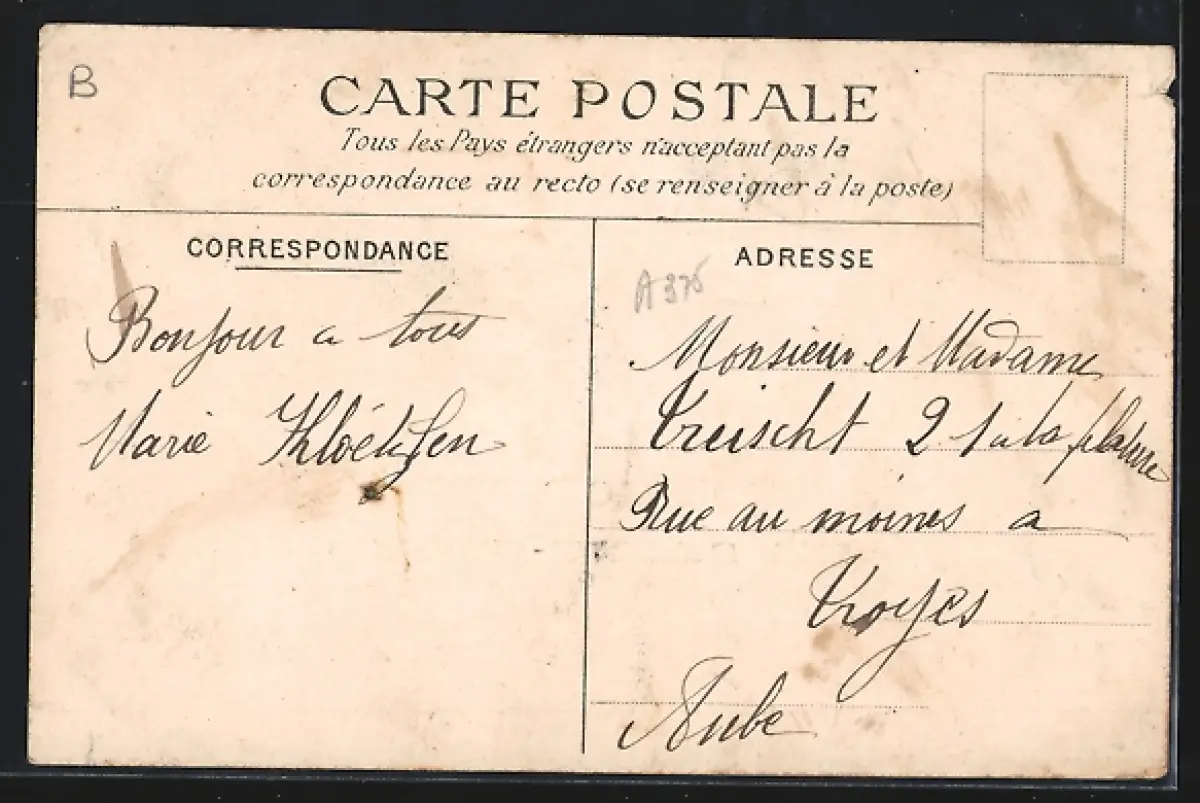 B
CARTE POSTALE
Tous les Pays étrangers n'acceptant pas la
correspondance au recto (se renseigner à la poste)
CORRESPONDANCE
Bonjour a tous
Marie Khloëtzen
ADRESSE
A 375
Monsieur et Madame
Treischt 2 a la filature
Rue au moines a
Troyes
Aube